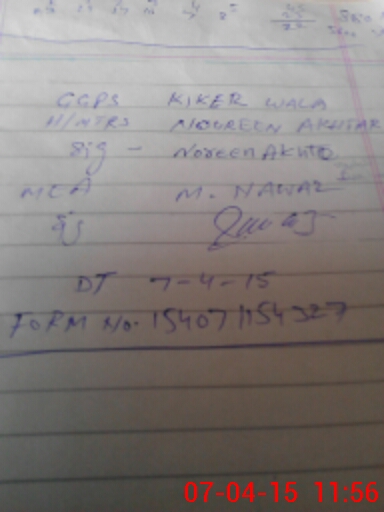 GGPS KIKER WALA
H/MTRS NOUREEN AKHTAR
Sig - Noreen Akhtr
MEA M. NAWAZ
Sig
DT 7-4-15
FORM No. 154071154327
07-04-15 11:56